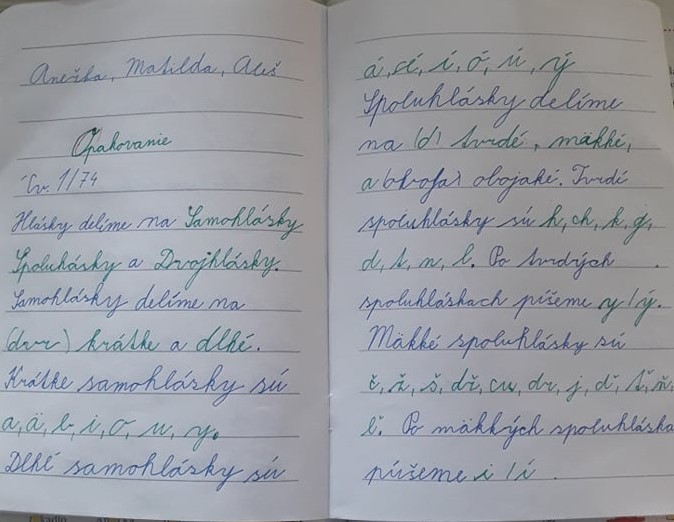 Anežka, Matilda, Aleš
Opakovanie
Cv. 1/74
Hlásky delíme na Samohlásky
Spoluhásky a Dvojhlásky.
Samohlásky delíme na
krátke a dlhé.
Krátke samohlásky sú
a, ä, e, i, o, u, y.
Dlhé samohlásky sú
á, é, í, ó, ú, ý
Spoluhlásky delíme
na (d) tvrdé, mäkké,
a obojaké. Tvrdé
spoluhlásky sú h, ch, k, g,
d, t, n, l. Po tvrdých
spoluhláskach píšeme y/ý.
Mäkké spoluhlásky sú
č, ž, š, dž, j, ď, ť, ň,
ľ. Po mäkkých spoluhláska
píšeme i/í.